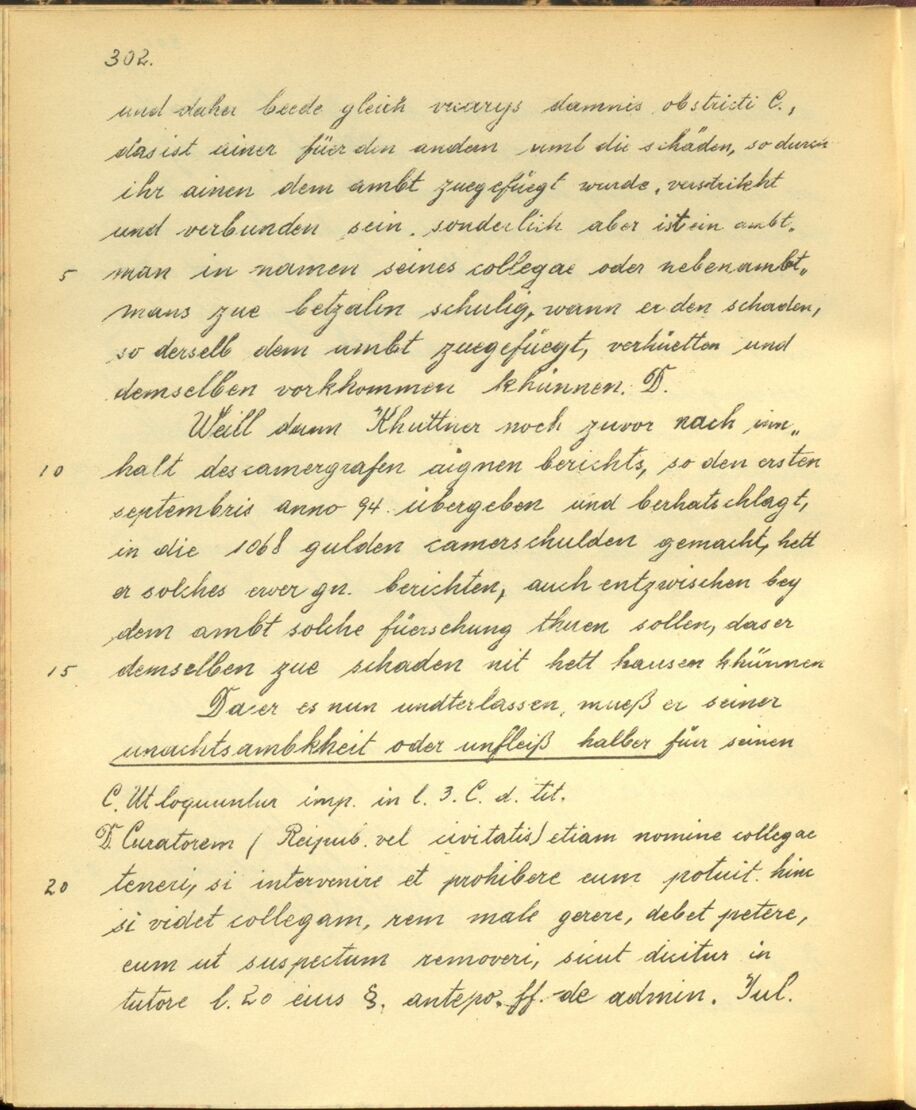 302.
und daher beede gleich vicarys damnis obstricti C.,
das ist ainer füer den andern umb die schäden, so durch
ihr ainen dem ambt zuegefüegt wurde, verstrikht
und verbunden sein, sonderlich aber ist ein ambt„
5 man in namen seines collegae oder nebenambt„
mans zue betzalln schulig, wann er den schaden,
so derselb dem ambt zuegefüegt, verhüetten und
demselben vorkhommen khünnen. D.
Weill dann Khuttner noch zuvor nach inn„
10 halt des camergrafen aignen berichts, so den ersten
septembris anno 94 übergeben und berhatschlagt,
in die 1068 gulden camerschulden gemacht, hett
er solches ewer gn. berichten, auch entzwischen bey
dem ambt solche füersehung thuen sollen, das er
15 demselben zue schaden nit hett hausen khünnen
Da er es nun undterlassen, mueß er seiner
unachtsambkheit oder unfleiß halber für seinen
C. Ut loquuntur imp. in l. 3. C. d. tit.
D. Curatorem (Reipub. vel civitatis) etiam nomine collegae
20 teneri, si intervenire et prohibere eum potuit. hinc
si videt collegam, rem male gerere, debet petere,
eum ut suspectum removeri, sicut dicitur in
tutore l. 20 eius §. antepo. ff. de admin. Tul.